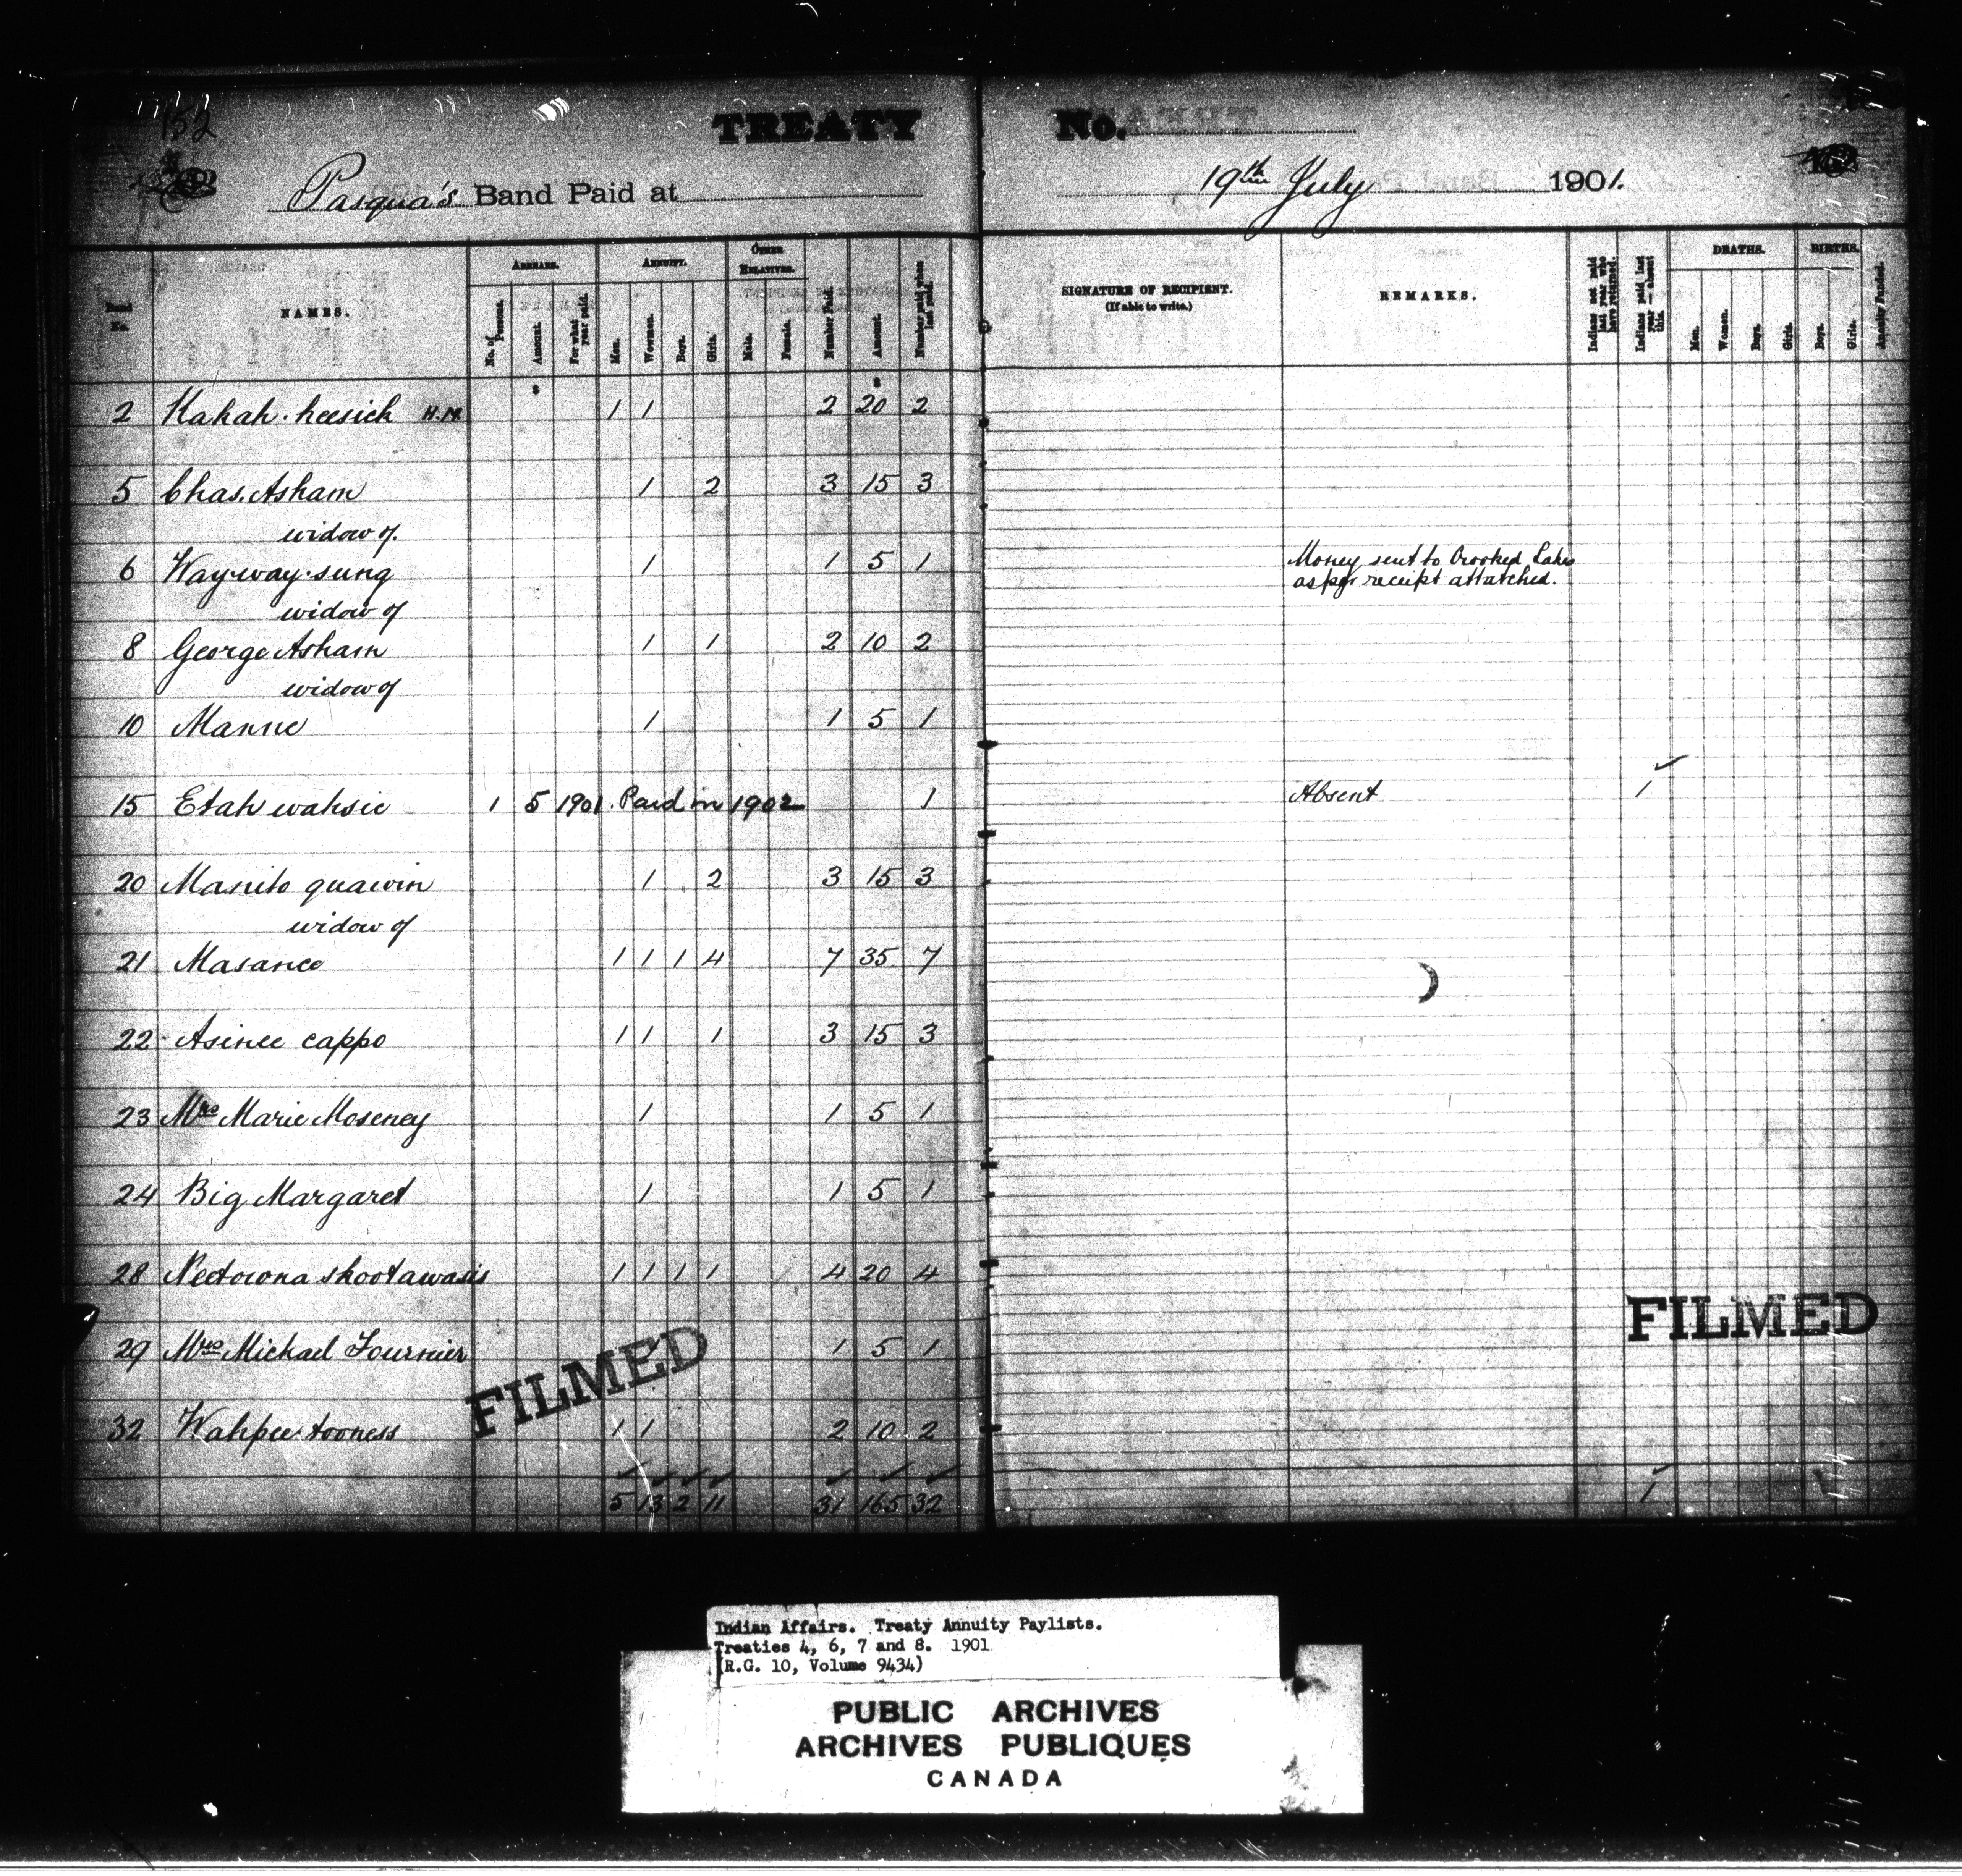 152
TREATY No.
Pasqua's Band Paid at 19th July 1901.
No.
NAMES.
ARREARS.
No. of Persons.
Amount.
For what year paid.
ANNUITY.
Men.
Women.
Boys.
Girls.
OTHER RELATIVES.
Male.
Female.
Number Paid.
Amount.
Number paid when last paid.
SIGNATURE OF RECIPIENT.
(If able to write.)
REMARKS.
Indians not paid last year who have returned.
Indians paid last year — absent this.
DEATHS.
Men.
Women.
Boys.
Girls.
BIRTHS.
Boys.
Girls.
Annuity Funded.
2 Kahah-keesich H.M. 1 1 2 20 2
5 Chas. Asham 1 2 3 15 3
widow of.
6 Way-way-sung 1 1 5 1 Money sent to Crooked Lakes
as per receipt attatched.
widow of
8 George Asham 1 1 2 10 2
widow of
10 Manne 1 1 5 1
15 Etah wahsie 1 5 1901. Paid in 1902 1 Absent 1
20 Manito quawin 1 2 3 15 3
widow of
21 Masance 1 1 1 4 7 35 7
22 Asinee cappo 1 1 1 3 15 3
23 Mrs Marie Moseney 1 1 5 1
24 Big Margaret 1 1 5 1
28 Neetowna skootawasis 1 1 1 1 4 20 4
FILMED
29 Mrs Michael Fournier 1 5 1
FILMED
32 Wahpee-tooness 1 1 2 10 2
5 13 2 11 31 165 32 1
Indian Affairs. Treaty Annuity Paylists.
Treaties 4, 6, 7 and 8. 1901
(R.G. 10, Volume 9434)
PUBLIC ARCHIVES
ARCHIVES PUBLIQUES
CANADA